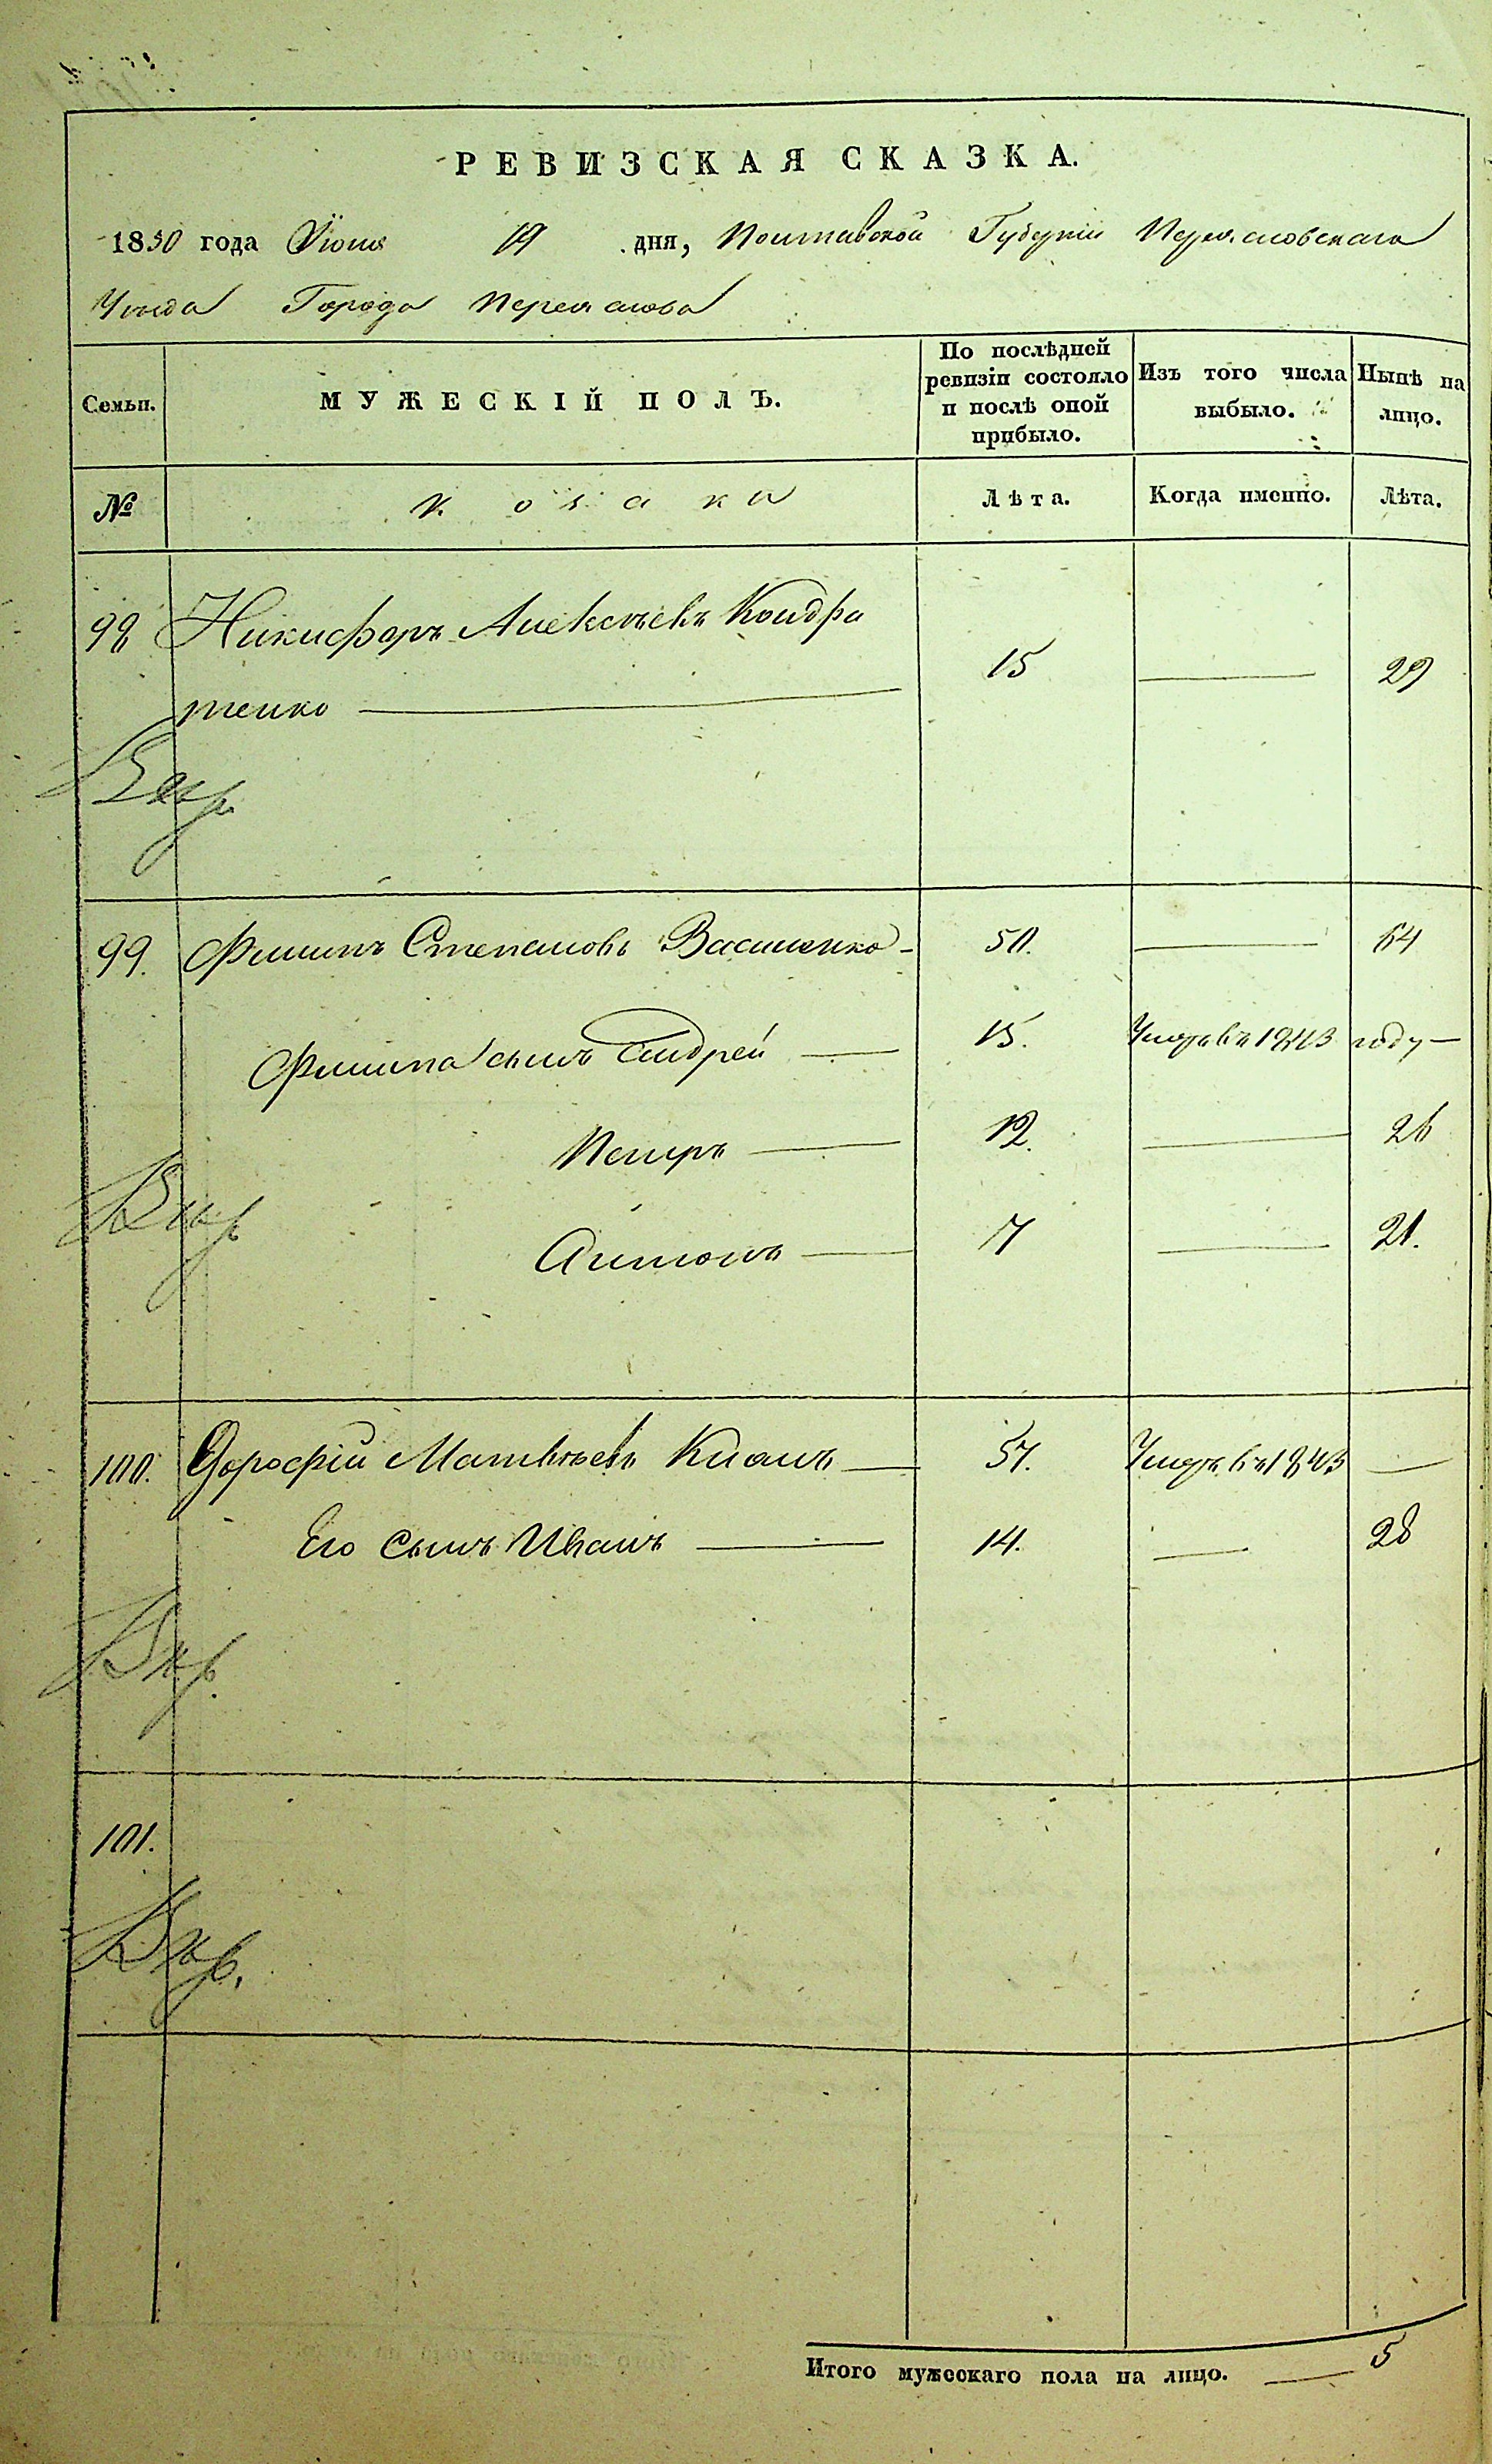 РЕВИЗСКАЯ СКАЗКА.
1850 года Іюня 19 дня, Полтавской Губерніи Переяславскаго
Уѣзда Города Переяслава
Семьи. МУЖЕСКІЙ ПОЛЪ. По послѣдней ревизіи состояло и послѣ оной прибыло. Изъ того числа выбыло. Нынѣ на лицо.
№ Козаки Лѣта. Когда именно. Лѣта.
98 Никифоръ Алексѣевъ Кондра
тенко 15 29
99. Филипъ Степановъ Василенко 50. 64
Филипа сынъ Андрей 15. Умеръ въ 1843 году
Петръ 12. 26
Антонъ 7 21.
100. Дорофій Матвѣевъ 57. Умеръ въ 1843
Его сынъ Иванъ 14. 28
101.
Итого мужескаго пола на лицо. 5